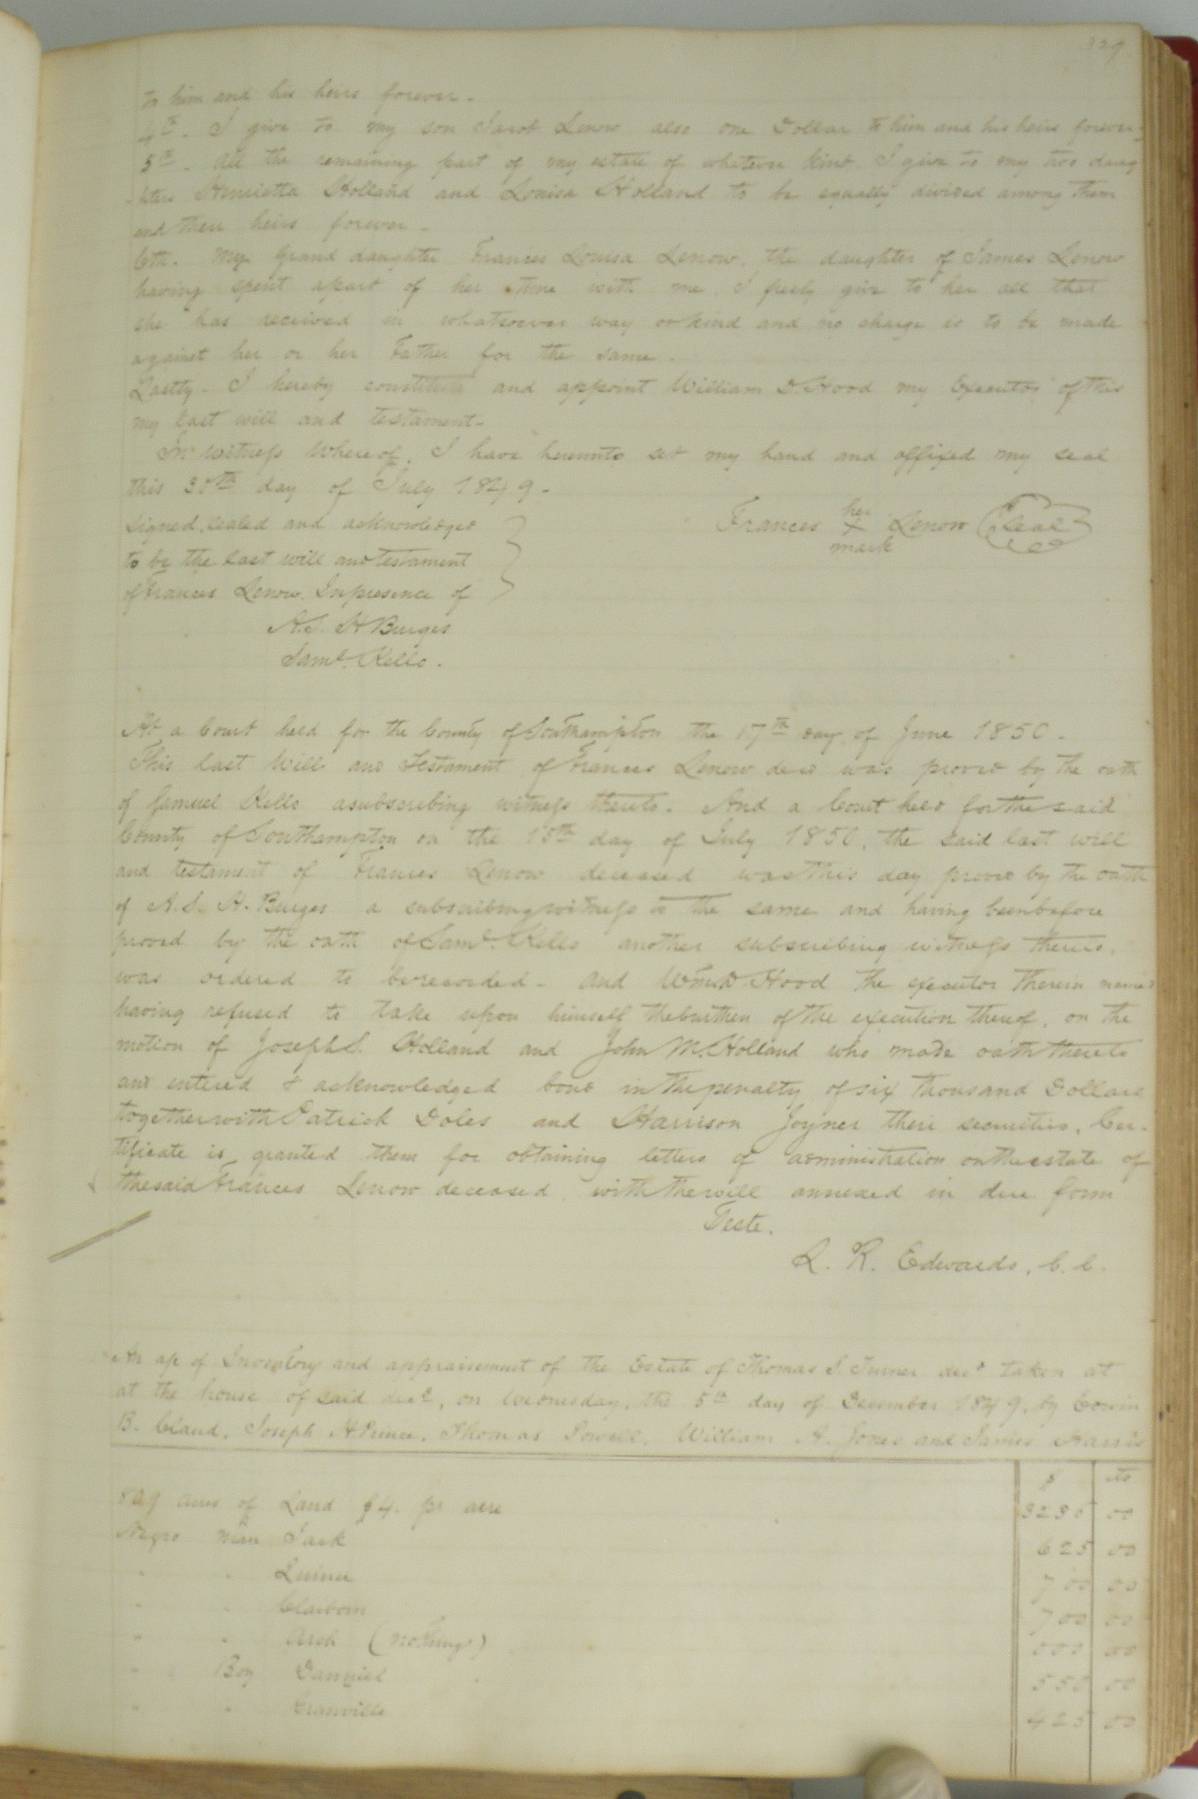 129
to him and his heirs forever.
4th. I give to my son Jacob Lenow also one Dollar to him and his heirs forever.
5th. All the remaining part of my estate of whatever kind I give to my two daug
hters Henrietta Holland and Louisa Holland to be equally divided among them
and their heirs forever.
6th. My grand daughter Frances Louisa Lenow, the daughter of James Lenow
having spent apart of her time with me, I freely give to her all that
she has received in whatsoever way or kind and no charge is to be made
against her or her Father for the same.
Lastly. I hereby constitute and appoint William D. Hood my Executor of this
my last will and testament.
In witness whereof, I have hereunto set my hand and affixed my seal
this 30th day of July 1849.
Signed, sealed and acknowledged
to be the last will and testament
of Frances Lenow. In presence of
A. S. H Burges
Saml. Kello.
her
Frances X Lenow Seal
mark
At a Court held for the County of Southampton the 17th day of June 1850.
This last Will and Testament of Frances Lenow decd was proved by the oath
of Samuel Kello a subscribing witness thereto. And a Court held for the said
County of Southampton on the 15th day of July 1850, the said last will
and testament of Frances Lenow deceased was this day proved by the oath
of A. S. H. Burges a subscribing witness to the same and having been before
proved by the oath of Saml. Kello another subscribing witness thereto,
was ordered to be recorded. And Wm D Hood the executor therein named
having refused to take upon himself the burthen of the execution thereof, on the
motion of Joseph S. Holland and John M. Holland who made oath thereto
and entered & acknowledged bond in the penalty of six thousand Dollars
together with Patrick Doles and Harrison Joyner their securities, Cer-
tificate is granted them for obtaining letters of administration on the estate of
the said Frances Lenow deceased, with the will annexed in due form
Teste.
L. R. Edwards, C. C.
An a/c of Inventory and appraisement of the Estate of Thomas S. Turner decd taken at
at the house of said decd, on Wednesday, the 5th day of December 1849, by
B. Claud, Joseph H Prince, Thomas Powell, William A. Jones and James Harris
$ cts
acres of Land $4. pr acre 3236 00
Negro man Jack 625 00
" " 700 00
" " Claiborn 700 00
" " Arch (nothing) 000 00
" Boy Danniel 550 00
" " Granville 425 00